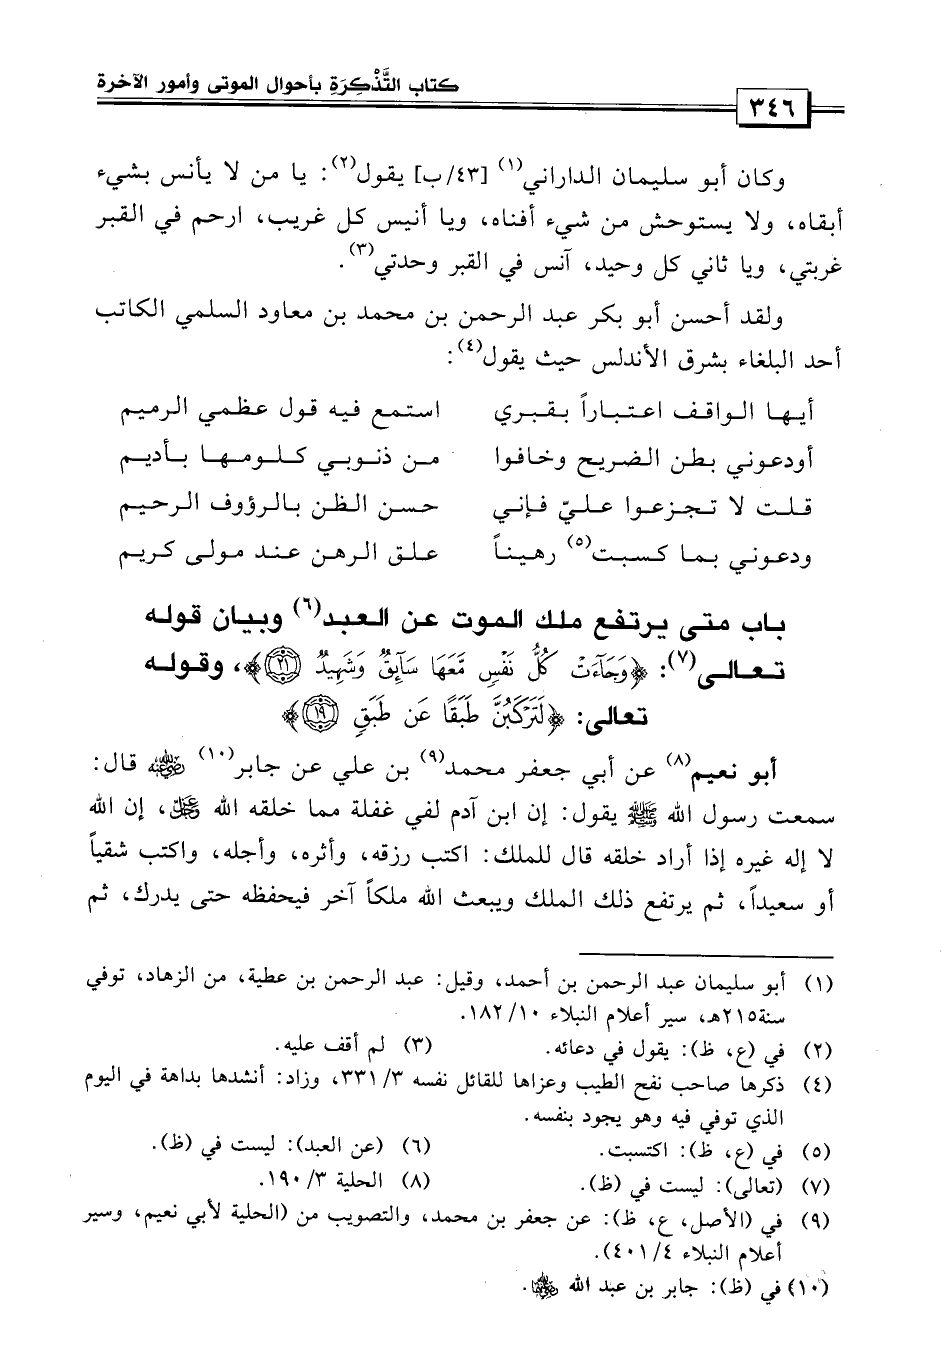 كتاب التَّذْكِرَةِ بأحوال الموتى وأمور الآخرة
٣٤٦
وكان أبو سليمان الداراني(١) [٤٣/ب] يقول(٢): يا من لا يأنس بشيء
أبقاه، ولا يستوحش من شيء أفناه، ويا أنيس كل غريب، ارحم في القبر
غربتي، ويا ثاني كل وحيد، آنس في القبر وحدتي(٣).
ولقد أحسن أبو بكر عبد الرحمن بن محمد بن معاود السلمي الكاتب
أحد البلغاء بشرق الأندلس حيث يقول(٤):
أيها الواقف اعتباراً بقبري استمع فيه قول عظمي الرميم
أودعوني بطن الضريح وخافوا من ذنوبي كلومها بأديم
قلت لا تجزعوا عليّ فإني حسن الظن بالرؤوف الرحيم
ودعوني بما كسبت(٥) رهيناً علق الرهن عند مولى كريم
باب متى يرتفع ملك الموت عن العبد(٦) وبيان قوله
تعالى(٧): ﴿وَجَاءَتْ كُلُّ نَفْسٍ مَّعَهَا سَآئِقٌ وَشَهِيدٌ ٢١﴾، وقوله
تعالى: ﴿لَتَرْكَبُنَّ طَبَقًا عَن طَبَقٍ ١٩﴾
أبو نعيم(٨) عن أبي جعفر محمد(٩) بن علي عن جابر(١٠) رضي الله عنه قال:
سمعت رسول الله ﷺ يقول: إن ابن آدم لفي غفلة مما خلقه الله عز وجل، إن الله
لا إله غيره إذا أراد خلقه قال للملك: اكتب رزقه، وأثره، وأجله، واكتب شقياً
أو سعيداً، ثم يرتفع ذلك الملك ويبعث الله ملكاً آخر فيحفظه حتى يدرك، ثم
(١) أبو سليمان عبد الرحمن بن أحمد، وقيل: عبد الرحمن بن عطية، من الزهاد، توفي
سنة٢١٥هـ، سير أعلام النبلاء ١٨٢/١٠.
(٢) في (ع، ظ): يقول في دعائه. (٣) لم أقف عليه.
(٤) ذكرها صاحب نفح الطيب وعزاها للقائل نفسه ٣٣١/٣، وزاد: أنشدها بداهة في اليوم
الذي توفي فيه وهو يجود بنفسه.
(٥) في (ع، ظ): اكتسبت. (٦) (عن العبد): ليست في (ظ).
(٧) (تعالى): ليست في (ظ). (٨) الحلية ١٩٠/٣.
(٩) في (الأصل، ع، ظ): عن جعفر بن محمد، والتصويب من (الحلية لأبي نعيم، وسير
أعلام النبلاء ٤٠١/٤).
(١٠) في (ظ): جابر بن عبد الله رضي الله عنهما.